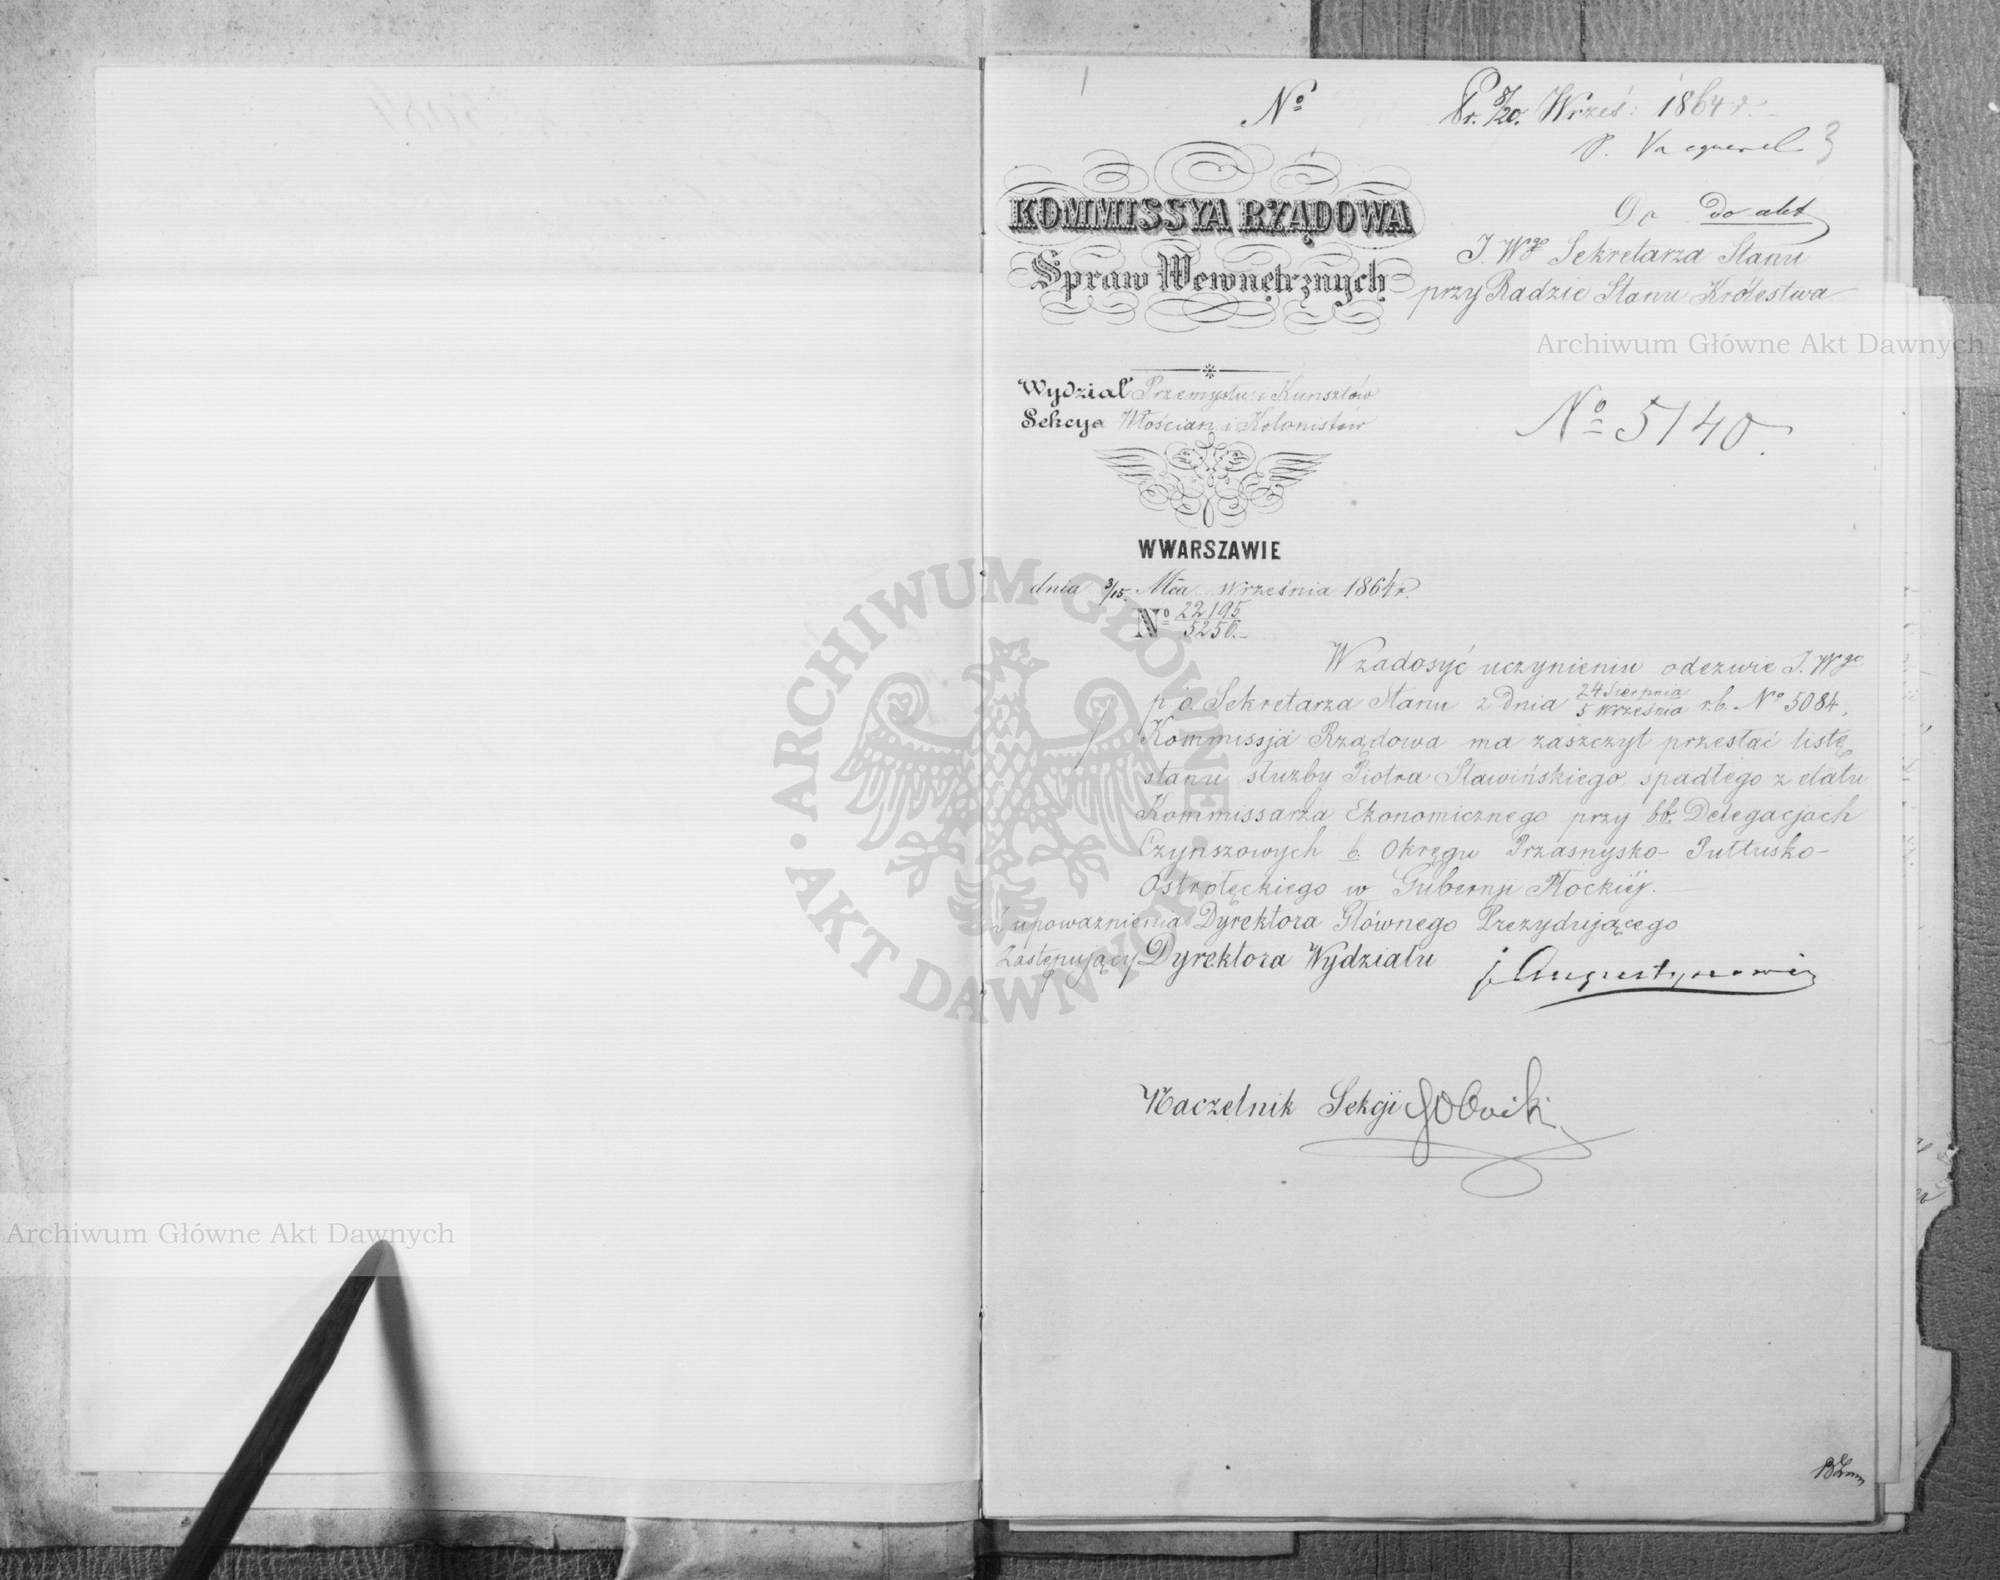 1
Nº
Pr. 8/20. Wrześ: 1864 r.
P. 3
KOMMISSYA RZĄDOWA
Spraw Wewnętrznych
Do do akt
J. Wgo Sekretarza Stanu
przy Radzie Stanu Królestwa
Archiwum Główne Akt Dawnych
Wydział Przemysłu i Kunsztów
Sekcya Włościan i Kolonistów
Nº 5140.
W WARSZAWIE
dnia 3/15. Mca Września 1864 r.
Nº 22195
5250.
W zadosyć uczynieniu odezwie J. Wgo
p. o. Sekretarza Stanu z dnia 24 Sierpnia / 5 Września r. b. Nº 5084,
Kommissja Rządowa ma zaszczyt przesłać listę
stanu służby Piotra Sławińskiego, spadłego z etatu
Kommissarza Ekonomicznego przy bb. Delegacjach
Czynszowych b. Okręgu Przasnysko- Pułtusko-
Ostrołęckiego w Gubernji Płockiéj.
Z upoważnienia Dyrektora Głównego Prezydującego
Zastępujący Dyrektora Wydziału
Naczelnik Sekcji
ARCHIWUM GŁÓWNE
AKT DAWNYCH
Archiwum Główne Akt Dawnych